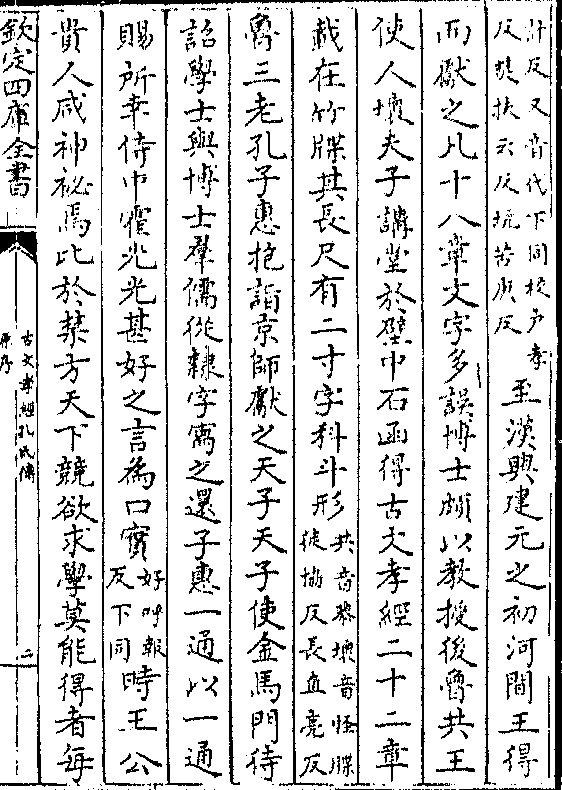 計反又音代下同挍户孝
反挾㳂反坑苦庚反
至漢興建元之初河間王得
而獻之凡十八章文字多誤博士頗以教授後魯共王
使人壞夫子講堂於壁中石函得古文孝經二十二章
載在竹牒其長尺有二寸字科斗形
共音恭壞音怪牒
徒協反長直亮反
魯三老孔子惠抱詣京師獻之天子天子使金馬門待
詔學士與博士羣儒從隸字寫之還子惠一通以一通
賜所幸侍中霍光光甚好之言為口實
好呼報
反下同
時王公
貴人咸神祕焉比於禁方天下競欲求學莫能得者每
欽定四庫全書
古文孝經孔氏傳
原序
二